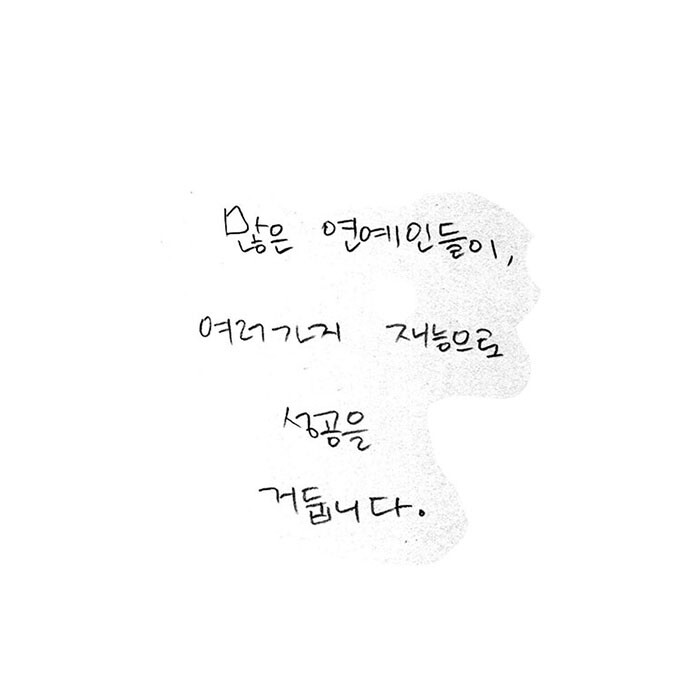 많은 연예인들이,
여러가지 재능으로
성공을
거둡니다.